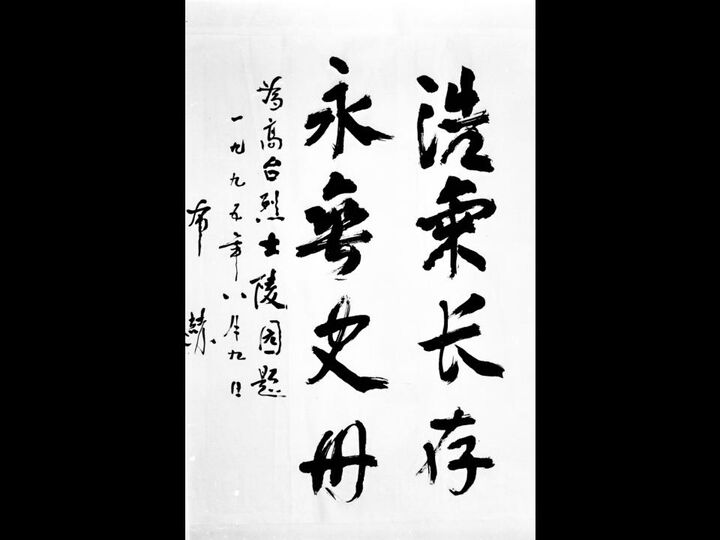 浩气长存
永垂史册
为高台烈士陵园题
一九九五年八月九日
布赫